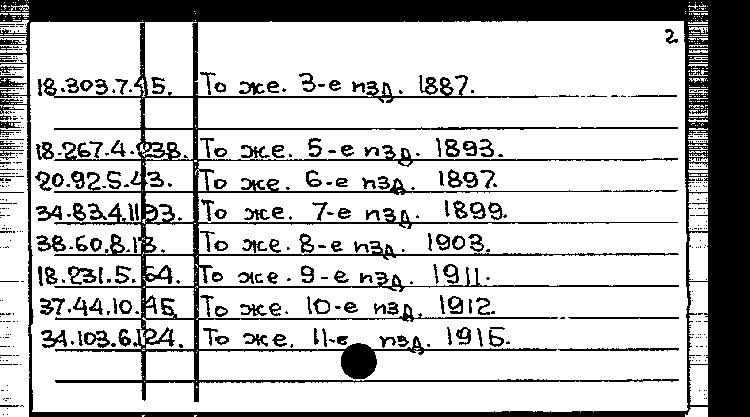 2.
18.303.7.45. То же. 3-е изд. 1887.
18.267.4.238. То же. 5-е изд. 1893.
20.92.5.43. То же. 6-е изд. 1897.
34.83.4.1193. То же. 7-е изд. 1899.
38.60.8.13. То же. 8-е изд. 1903.
18.231.5.64. То же. 9-е изд. 1911.
37.44.10.45. То же. 10-е изд. 1912.
34.103.6.124. То же. 11-е изд. 1915.